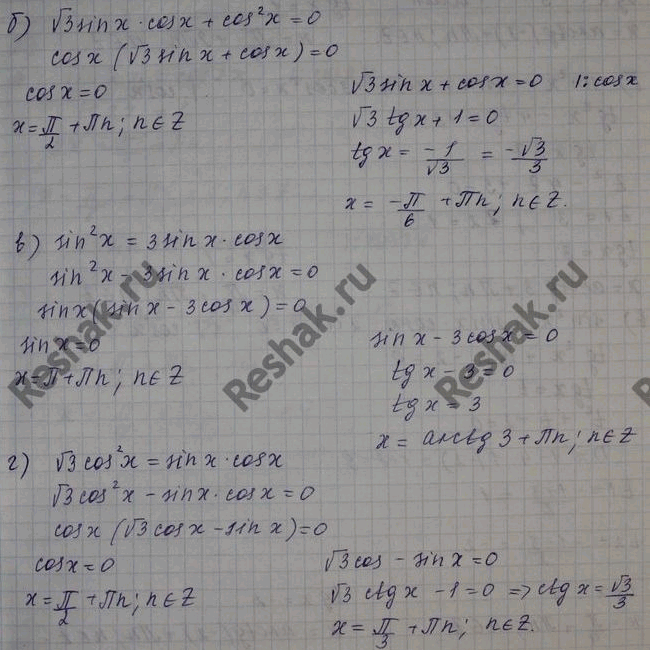 б) √3sinx·cosx + cos²x = 0
cosx (√3sinx + cosx) = 0
cosx = 0
x = π/2 + πn; n∈Z
√3sinx + cosx = 0 |:cosx
√3 tgx + 1 = 0
tgx = -1/√3 = -√3/3
x = -π/6 + πn; n∈Z.
в) sin²x = 3sinx·cosx
sin²x - 3sinx·cosx = 0
sinx(sinx - 3cosx) = 0
sinx = 0
x = π + πn; n∈Z
sinx - 3cosx = 0
tgx - 3 = 0
tgx = 3
x = arctg3 + πn; n∈Z
г) √3cos²x = sinx·cosx
√3cos²x - sinx·cosx = 0
cosx (√3cosx - sinx) = 0
cosx = 0
x = π/2 + πn; n∈Z
√3cos - sinx = 0
√3 ctgx - 1 = 0 => ctgx = √3/3
x = π/3 + πn; n∈Z.
Reshak.ru
Reshak.ru
Reshak.ru